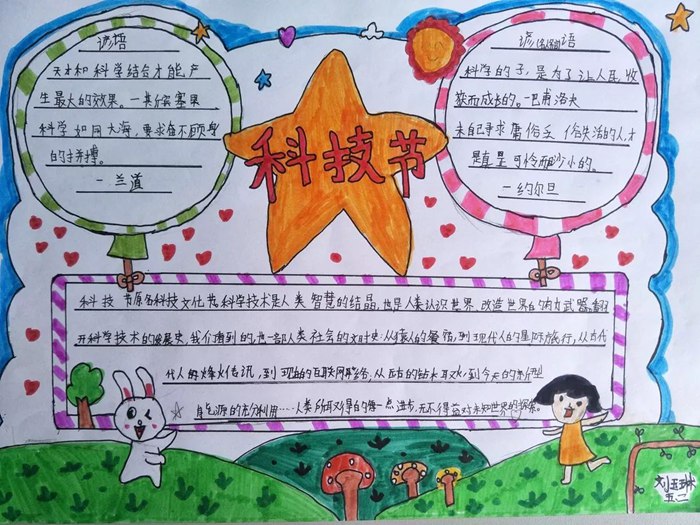 谚语
天才和科学结合才能产
生最大的效果。一其
塞 果
科学如同大海，要求奋不顾身
的拼搏。
一兰道
科技节
谚语
科学的子，是为了让人民收
获而成长的。一巴甫洛夫
未自己寻求庸俗乏俗失活的人，才
是直是可怜而沙小的。
一约尔旦
科技节原名科技文化节，科学技术是人类智慧的结晶，也是人类认识世界、改造世界的有力武器。翻
开科学技术的发展史，我们看到的，也一部人类社会的文明史：从猿人的 ，到现代人的星际旅行，从古代
代人的烽火传讯，到现在的互联网联络，从古的钻木取火，到今天的新型
能源的充分利用……人类所取得的每一点进步，无不得益对未知世界的探索。
刘玉琳
五二